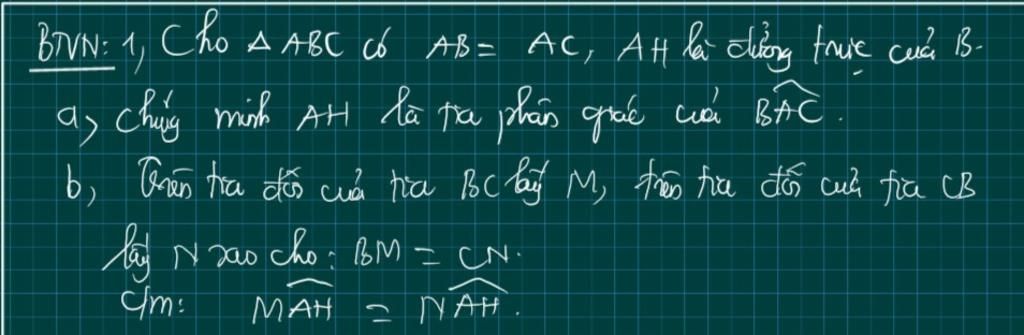 BTVN: 1, Cho △ ABC có AB = AC, AH là đường trực của B.
a, chứng minh AH là tia phân giác của \(\widehat{BAC}\).
b, Trên tia đối của tia BC lấy M, trên tia đối của tia CB
lấy N sao cho: BM = CN.
c/m: \(\widehat{MAH}\) = \(\widehat{NAH}\).